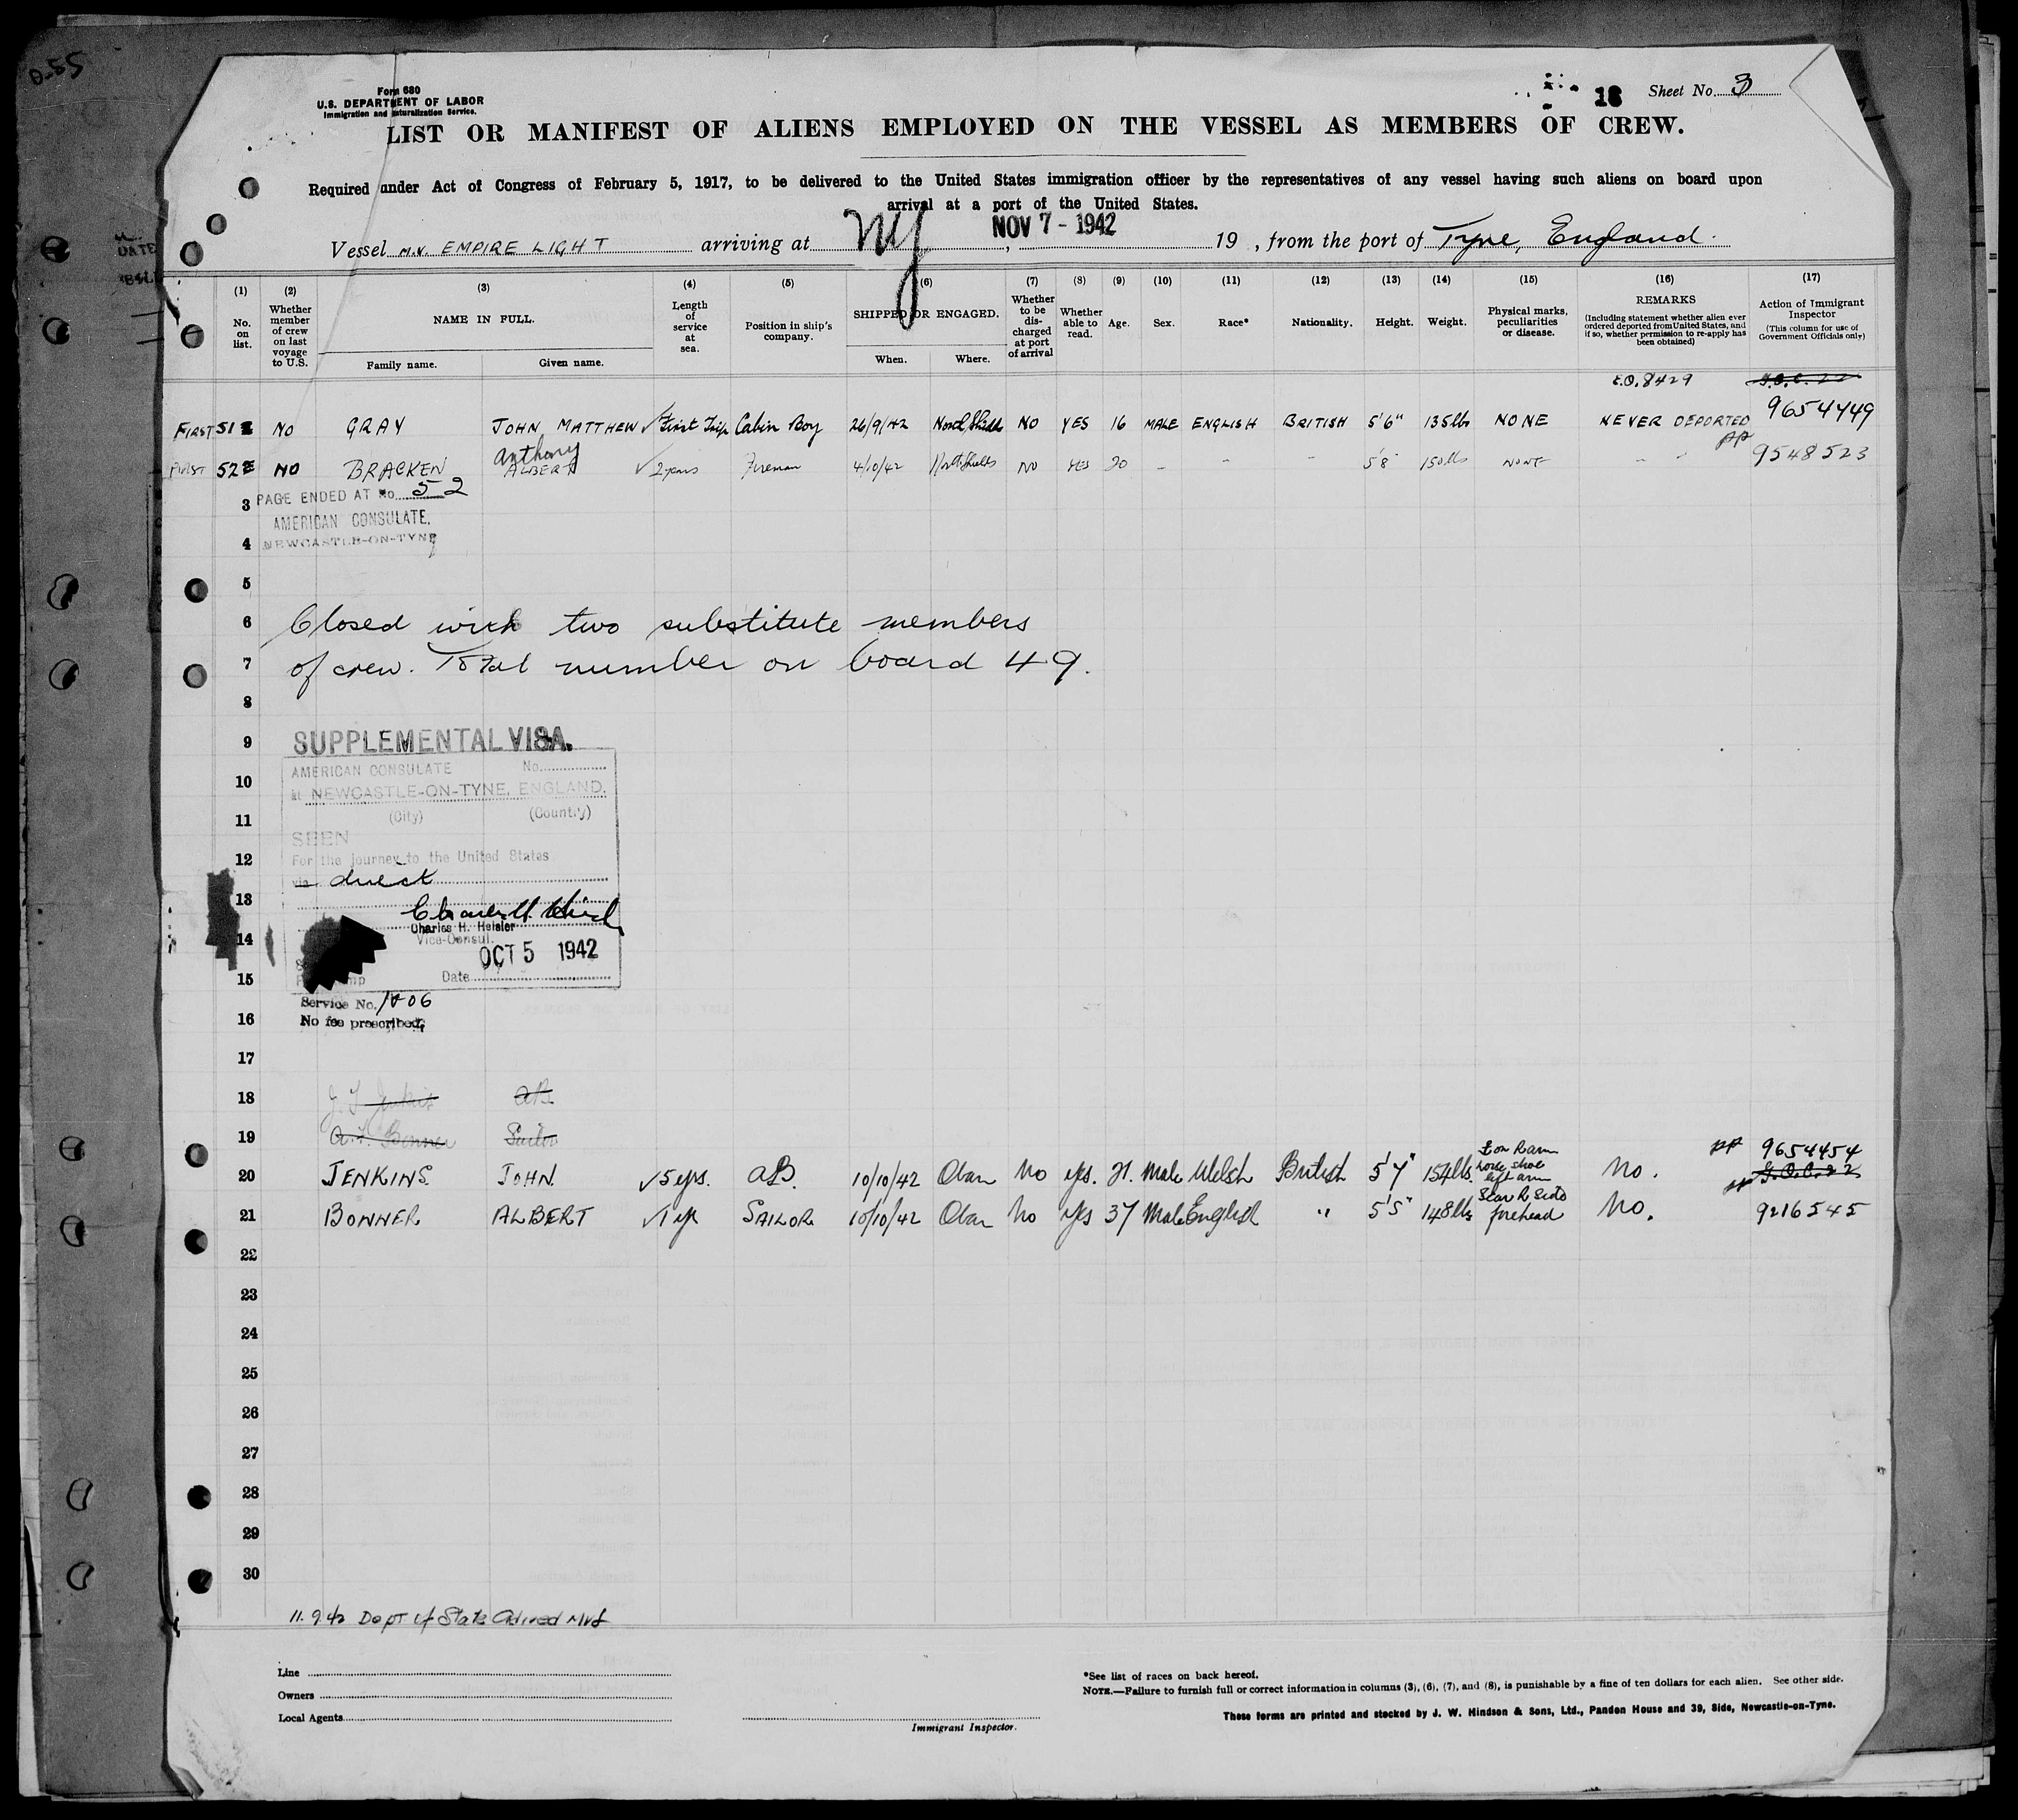 D-55
Form 680
U.S. DEPARTMENT OF LABOR
Immigration and Naturalization Service.
18 Sheet No. 3
LIST OR MANIFEST OF ALIENS EMPLOYED ON THE VESSEL AS MEMBERS OF CREW.
Required under Act of Congress of February 5, 1917, to be delivered to the United States immigration officer by the representatives of any vessel having such aliens on board upon
arrival at a port of the United States.
Vessel M.V. EMPIRE LIGHT arriving at NY, NOV 7 - 1942 19 , from the port of Tyne, England.
(1) (2) (3) (4) (5) (6) (7) (8) (9) (10) (11) (12) (13) (14) (15) (16) (17)
No. on list.
Whether member of crew on last voyage to U.S.
NAME IN FULL.
Family name. Given name.
Length of service at sea.
Position in ship's company.
SHIPPED OR ENGAGED.
When. Where.
Whether to be discharged at port of arrival
Whether able to read.
Age. Sex. Race* Nationality. Height. Weight.
Physical marks, peculiarities or disease.
REMARKS
(Including statement whether alien ever ordered deported from United States, and if so, whether permission to re-apply has been obtained)
Action of Immigrant Inspector
(This column for use of Government Officials only)
E.O. 8429
FIRST 51 NO GRAY JOHN MATTHEW ✓ First Trip Cabin Boy 26/9/42 North Shields NO YES 16 MALE ENGLISH BRITISH 5'6" 135 lbs NONE NEVER DEPORTED 9654449
Anthony
FIRST 52 NO BRACKEN ALBERT ✓ 2 years Fireman 4/10/42 North Shields NO YES 20 - - - 5'8" 150 lbs NONE - - PP 9548523
3 PAGE ENDED AT No. 52
AMERICAN CONSULATE,
4 NEWCASTLE-ON-TYNE
5
6 Closed with two substitute members
7 of crew. Total number on board 49.
8
9 SUPPLEMENTAL VISA.
AMERICAN CONSULATE No.
10 at NEWCASTLE-ON-TYNE, ENGLAND.
11 (City) (Country)
SEEN
12 For the journey to the United States
via direct
13
Charles H. Heisler
14 Vice-Consul.
OCT 5 1942
15 Date
Service No. 1806
16 No fee prescribed.
17
18 J. Jenkins AB
19 A. Bonner Sailor
20 JENKINS JOHN ✓ 5 yrs. AB. 10/10/42 Oban No yes. 21. Male Welsh British 5'7" 154 lbs. on R arm horse shoe left arm No. PP 9654454
21 BONNER ALBERT ✓ 1 yr SAILOR 10/10/42 Oban No yes 37 Male English " 5'5" 148 lbs Scar R side forehead No. PP 9216545
22
23
24
25
26
27
28
29
30
11.9.42 Dept of State Advised
Line
Owners
Local Agents
Immigrant Inspector.
*See list of races on back hereof.
NOTE.—Failure to furnish full or correct information in columns (3), (6), (7), and (8), is punishable by a fine of ten dollars for each alien. See other side.
These forms are printed and stocked by J. W. Hindson & Sons, Ltd., Pandon House and 39, Side, Newcastle-on-Tyne.